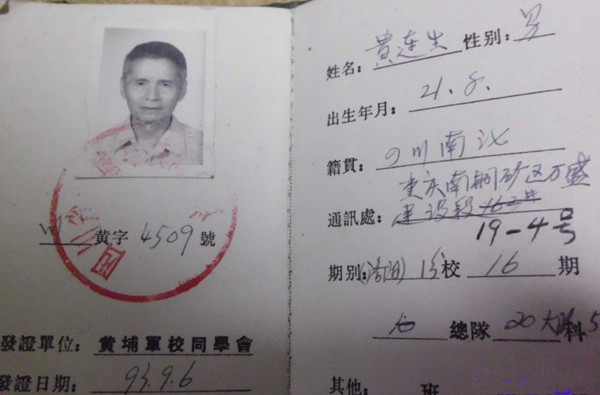 川 黄字 4509 號
發證單位：黄埔軍校同學會
發證日期：93.9.6
姓名：黄连生 性别：男
出生年月：21.8.
籍貫：四川南江
重庆南桐矿区万盛
通訊處：建设段
19-4号
期别：(洛阳)分校 16 期
總隊 20 大队
其他： 班